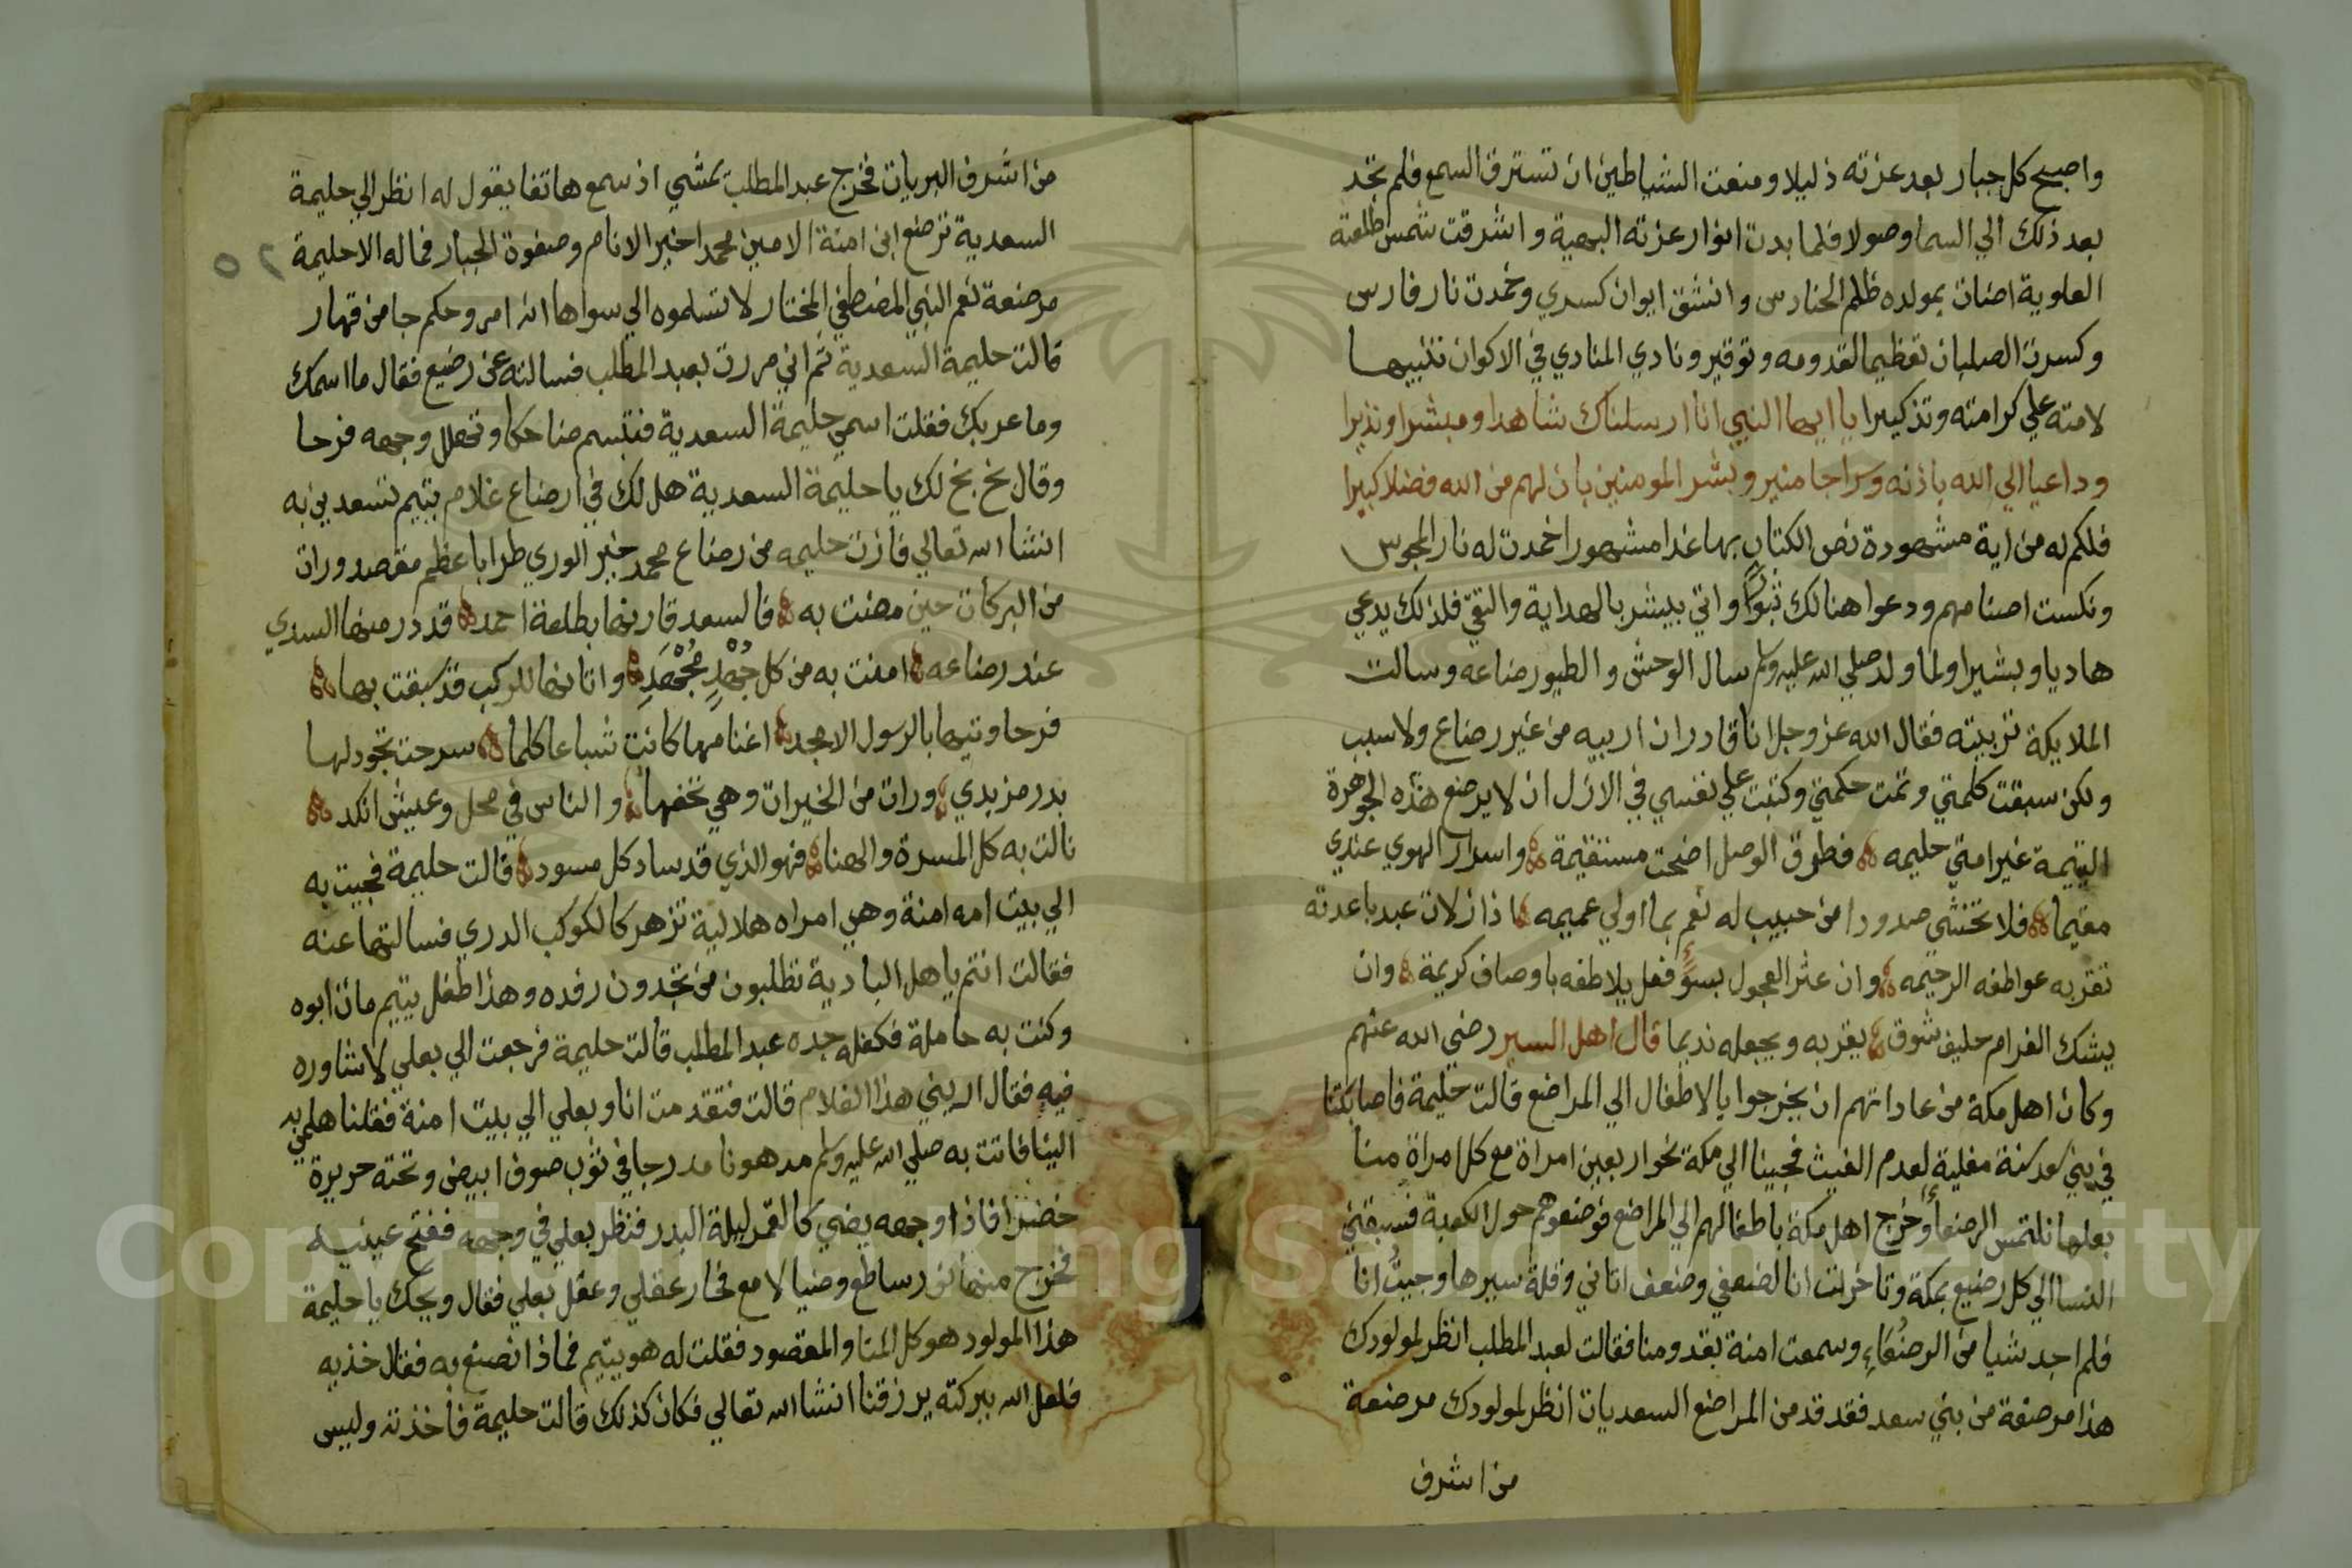 واصبح كل جبار بعد عزته ذليلا ومنعت الشياطين ان تسترق السمع فلم تجد
بعد ذلك الي السما وصولا فلما بدت انوار عزته البهية واشرقت شمس طلعته
العلوية اضات بمولده ظلم الحنادس وانشق ايوان كسري وخمدت نار فارس
وكسرت الصلبان تعظيما لقدومه وتوقير ونادي المنادي في الاكوان تنبيها
لامته علي كرامته وتذكيرا يا ايها النبي انا ارسلناك شاهدا ومبشرا ونذيرا
وداعيا الي الله باذنه وسراجا منير وبشر المومنين بان لهم من الله فضلا كبيرا
فلكم له من اية مشهودة نص الكتاب بها غدا مشهورا خمدت له نار المجوس
ونكست اصنامهم ودعوا هنالك ثبورا واتي يبشر بالهداية والتقي فلذلك يدعي
هاديا وبشيرا ولما ولد صلي الله عليه وسلم سال الوحش والطيور رضاعه وسالت
الملايكة تربيته فقال الله عز وجل انا قادر ان اربيه من غير رضاع ولا سبب
ولكن سبقت كلمتي وتمت حكمتي وكتبت علي نفسي في الازل ان لا يرضع هذه الجوهرة
اليتيمة غير امتي حليمه فطرق الوصل اضحت مستقيمة واسرار الهوي عندي
مقيما فلا تخشي صدودا من حبيب له نعم بما اولي عميمه اذا زلات عبد باعدته
تقربه عواطفه الرحيمه وان عثر العجول بسوء فعل يلاطفه باوصاف كريمة وان
يشك الغرام حليف شوق يقربه ويجعله نديما قال اهل السير رضي الله عنهم
وكان اهل مكة من عاداتهم ان يخرجوا بالاطفال الي المراضع قالت حليمة فاصابتنا
في بني سعد سنة مغلية لعدم الغيث فجينا الي مكة نحو اربعين امراة مع كل امراة منا
بعلها نلتمس الرضعا وخرج اهل مكة باطفالهم الي المراضع فوضعوهم حول الكعبة فسبقني
النسا الي كل رضيع بمكة وتاخرت انا لضعفي وضعف اتاني وقلة سيرها وجيت انا
فلم اجد شيا من الرضعاء وسمعت امنة بقدومنا فقالت لعبد المطلب انظر لمولودك
هذا مرضعة من بني سعد فقد قدمن المراضع السعديات انظر لمولودك مرضعة
من اشرف
من اشرف البريات فخرج عبد المطلب يمشي اذ سمع هاتفا يقول له انظر الي حليمة
السعدية ترضع ابن امنة الامين محمدا خير الانام وصفوة الجبار فما له الا حليمة
مرضعة نعم النبي المصطفي المختار لا تسلموه الي سواها انه امر وحكم جا من قهار
قالت حليمة السعدية ثم اني مررت بعبد المطلب فسالته عن رضيع فقال ما اسمك
وما عربك فقلت اسمي حليمة السعدية فتبسم ضاحكا وتهلل وجهه فرحا
وقال بخ بخ لك يا حليمة السعدية هل لك في ارضاع غلام يتيم تسعدين به
انشا الله تعالي فازت حليمه من رضاع محمد خير الوري طرا باعظم مقصد ورات
من البركات حين مضت به فالسعد قارنها بطلعة احمد قد در منها الثدي
عند رضاعه امنت به من كل جُهْدٍ مُجْهِدِ واتانها للركب قد سبقت بها
فرحا وتيها بالرسول الامجد اغنامها كانت شباعا كلما سرحت تجود لها
بدر مزبدي ورات من الخيرات وهي تخصها والناس في محل وعيش انكد
نالت به كل المسرة والهنا فهو الذي قد ساد كل مسود قالت حليمة فجيت به
الي بيت امه امنة وهي امراه هلالية تزهر كالكوكب الدري فسالتها عنه
فقالت انتم يا هل البادية تطلبون من تجدون رفده وهذا طفل يتيم مات ابوه
وكنت به حاملة فكفله جده عبد المطلب قالت حليمة فرجعت الي بعلي لاشاوره
فيه فقال اريني هذا الغلام قالت فتقدمت انا وبعلي الي بيت امنة فقلنا هلمي به
الينا فاتت به صلي الله عليه وسلم مدهونا مدرجا في ثوب صوف ابيض وتحته حريرة
خضرا فاذا وجهه يضي كالقمر ليلة البدر فنظر بعلي في وجهه ففتح عينيه
فخرج منهما نور ساطع وضيا لامع فحار عقلي وعقل بعلي فقال ويحك يا حليمة
هذا المولود هو كل المنا والمقصود فقلت له هو يتيم فماذا نصنع به فقال خذيه
فلعل الله ببركته يرزقنا انشا الله تعالي فكان كذلك قالت حليمة فاخذته وليس
Copyright © King Saud University